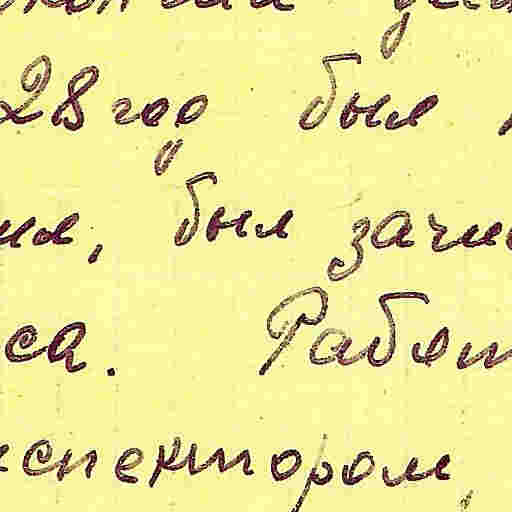 28 году был
был зачис
са. Работ
спектором,